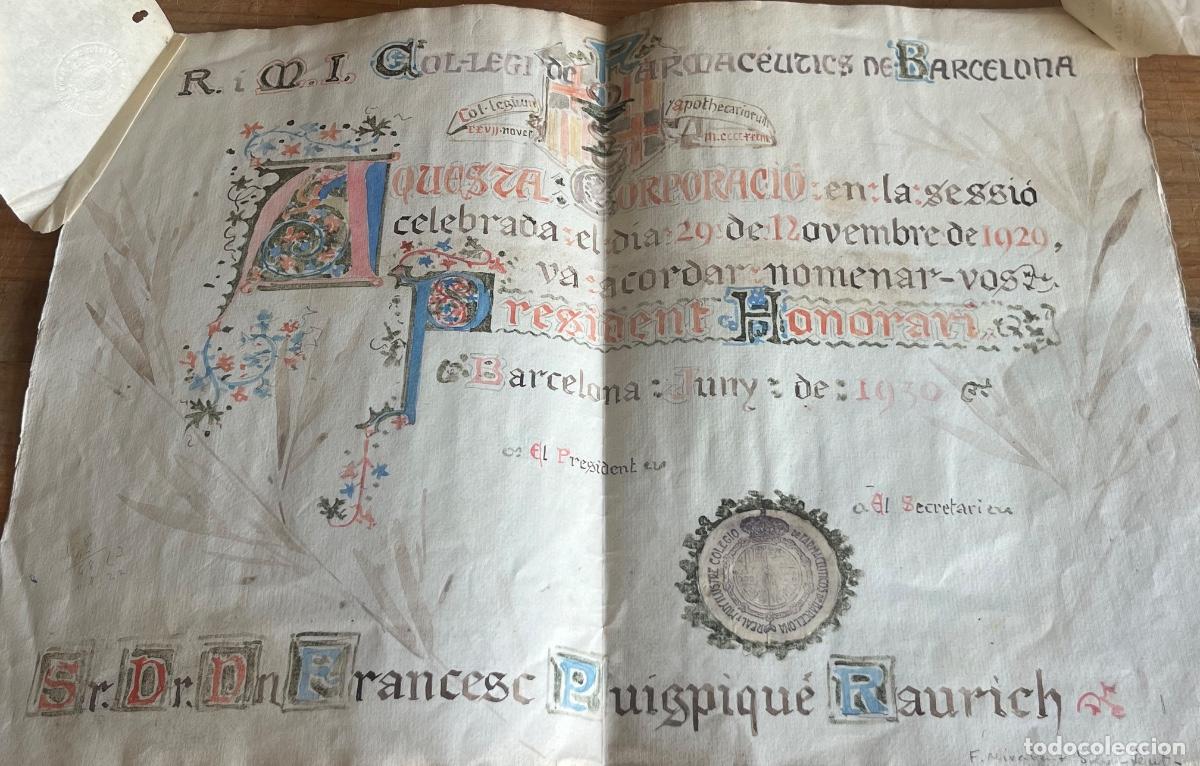 R. i M. I. Col·legi de Farmacéutics de Barcelona
Col·legium Apothecariorum
XXVII·nover
Aquesta : Corporació : en : la : sessió
celebrada : el : dia : 29 : de : Novembre de 1929,
va : acordar : nomenar-vos
President Honorari
Barcelona : Juny : de : 1930
El President
El Secretari
REAL Y MUY ILUSTRE COLEGIO DE FARMACEUTICOS DE BARCELONA
Sr. Dr. Dn Francesc Puigpiqué Raurich
todocoleccion